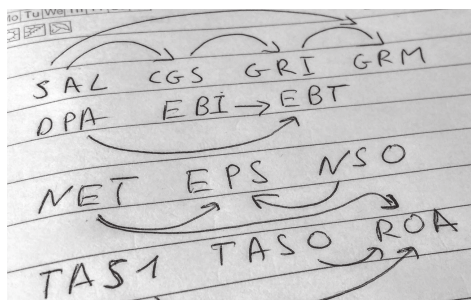 Mo Tu We Th
SAL CGS GRI GRM
DPA EBI → EBT
NET EPS NSO
TAS1 TASO ROA